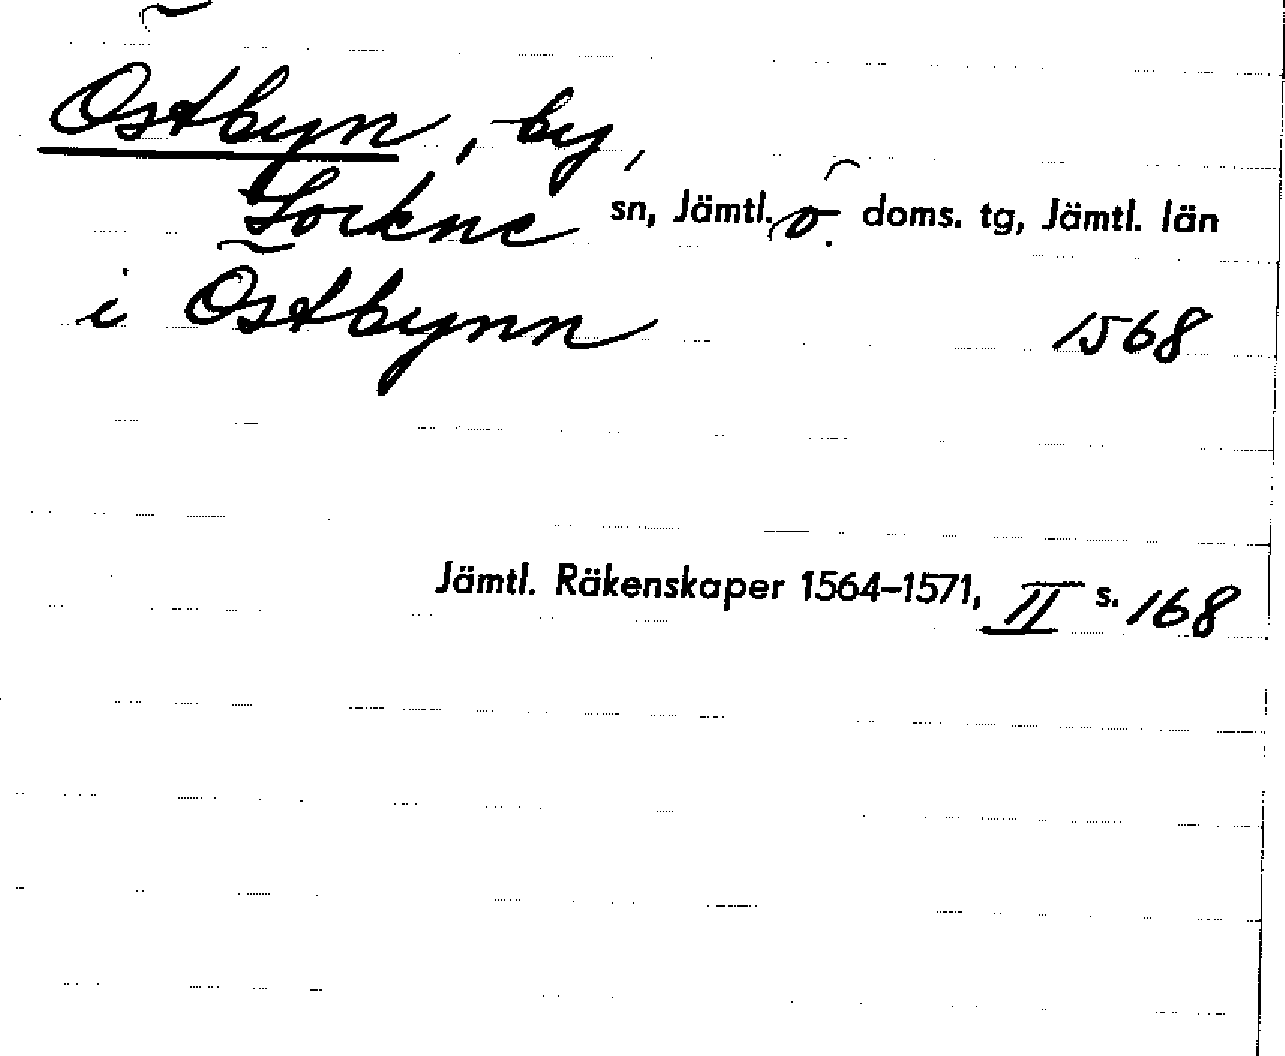 Östbyn, by,
Lockne sn, Jämtl. ö. doms. tg, Jämtl. län
i Östbynn 1568
Jämtl. Räkenskaper 1564–1571, II s. 168